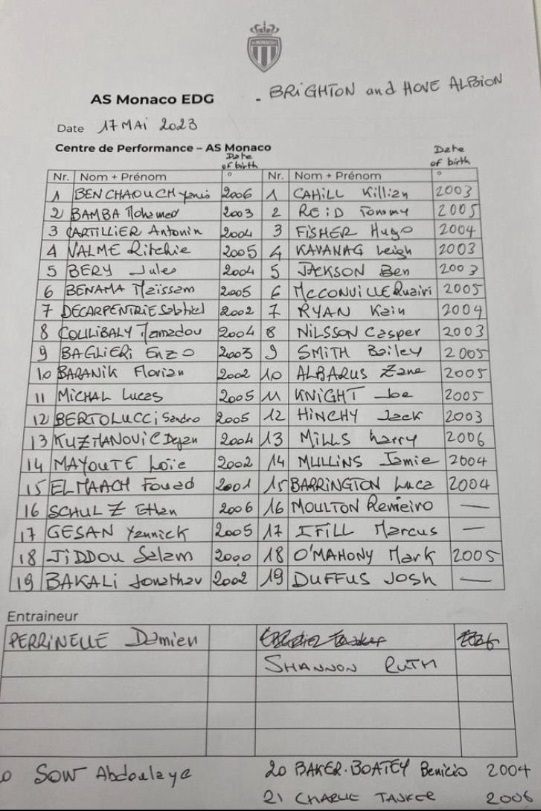 AS Monaco EDG - BRIGHTON and HOVE ALBION
Date 17 MAI 2023
Centre de Performance – AS Monaco
Date of birth Date of birth
Nr. Nom + Prénom ° Nr. Nom + Prénom °
1 BENCHAOUCH Yanis 2006 1 CAHILL Killian 2003
2 BAMBA Mohamed 2003 2 REID Tommy 2005
3 CARTILLIER Antonin 2004 3 FISHER Hugo 2004
4 VALME Ritchie 2005 4 KAVANAG Leigh 2003
5 BERY Jules 2004 5 JACKSON Ben 2003
6 BENAMA Maïssam 2005 6 McCONVILLE Ruairi 2005
7 DECARPENTRIE Gabriel 2002 7 RYAN Kain 2004
8 COULIBALY Mamadou 2004 8 NILSSON Casper 2003
9 BAGLIERI Enzo 2003 9 SMITH Bailey 2005
10 BARANIK Florian 2002 10 ALBARUS Zane 2005
11 MICHAL Lucas 2005 11 KNIGHT Joe 2005
12 BERTOLUCCI Sandro 2005 12 HINCHY Jack 2003
13 KUZMANOVIC Dejan 2004 13 MILLS Harry 2006
14 MAYOUTE Loïc 2002 14 MULLINS Jamie 2004
15 EL MAACH Fouad 2001 15 BARRINGTON Luca 2004
16 SCHULZ Ethan 2006 16 MOULTON Remeiro —
17 GESAN Yannick 2005 17 IFILL Marcus —
18 JIDDOU Salem 2000 18 O'MAHONY Mark 2005
19 BAKALI Jonathan 2002 19 DUFFUS Josh —
Entraineur
PERRINELLE Damien
SHANNON RUTH
0 SOW Abdoulaye 20 BAKER-BOATEY Benicio 2004
21 CHARLIE TASKER 2006